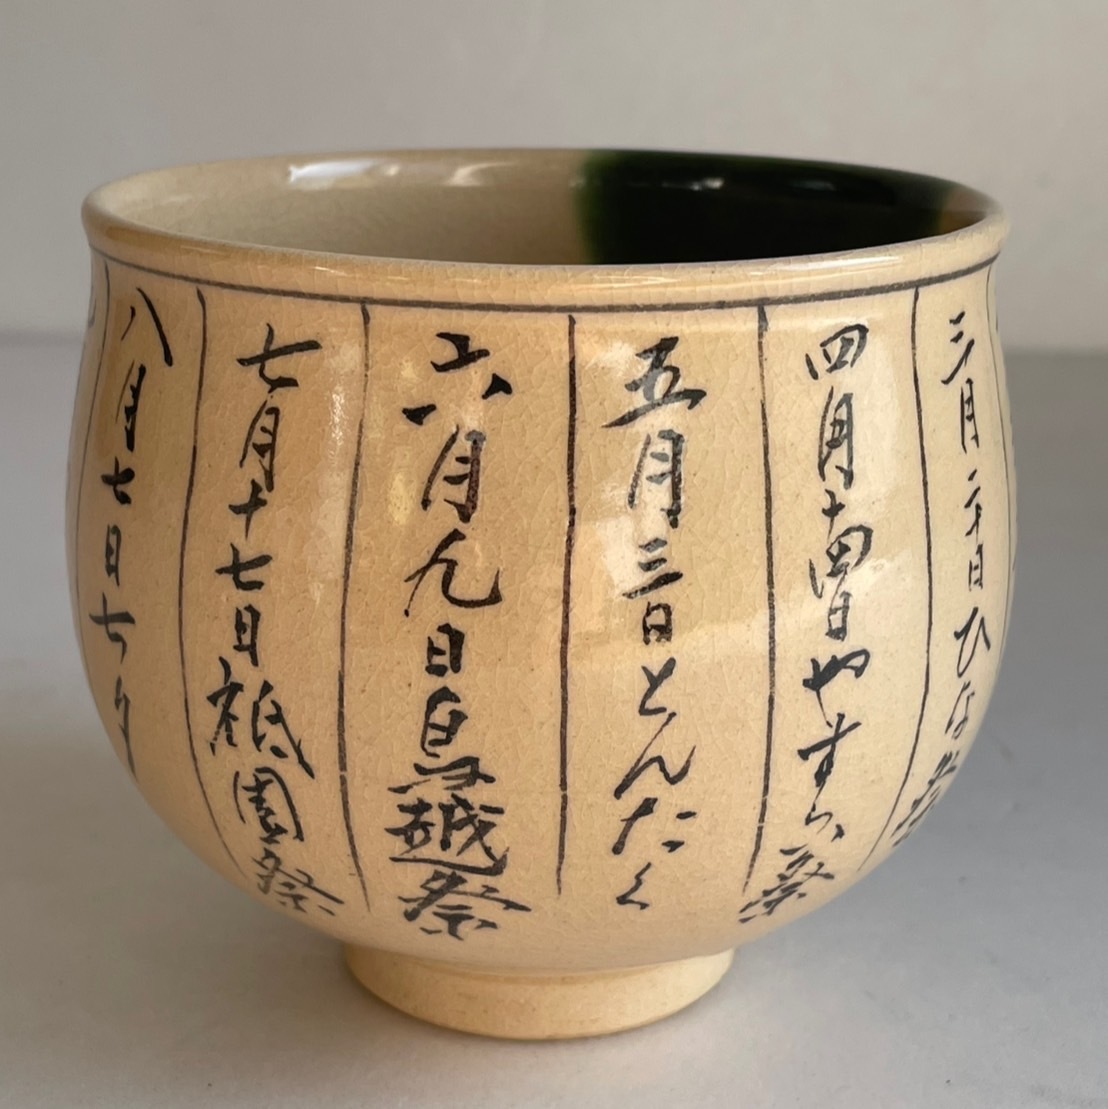 三月二十日ひな
四月十四日やすら祭
五月三日とんたく
六月九日鳥越祭
七月十七日祇園祭
八月七日七夕